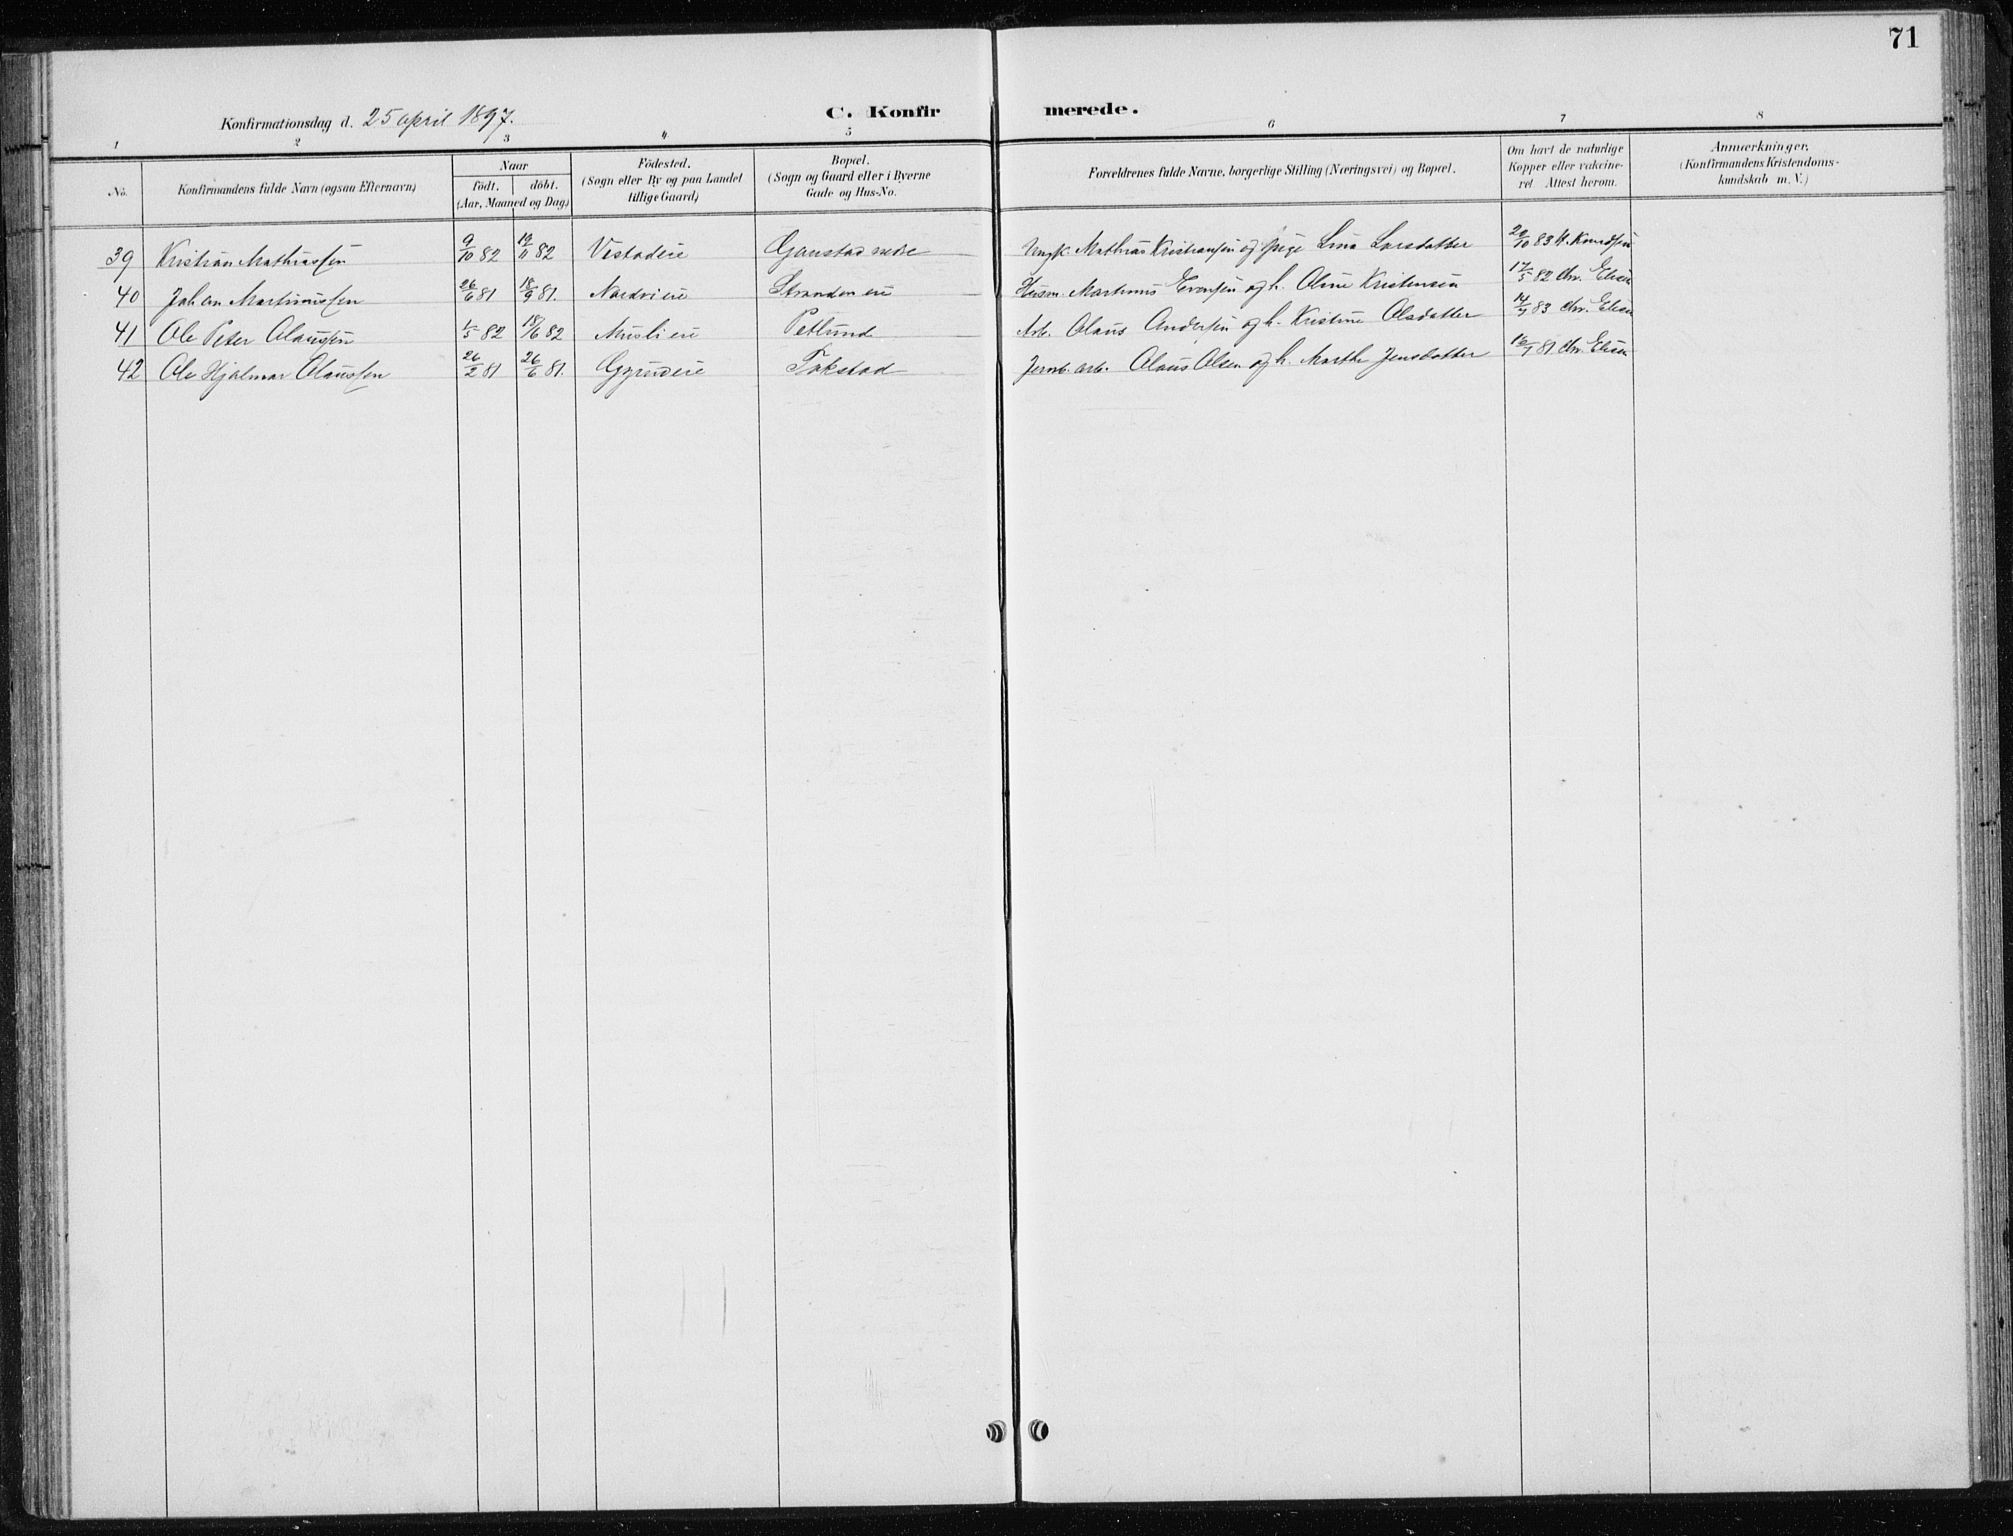 71
Konfirmationsdag d. 25 april 1897.
C. Konfirmerede.
1 2 3 4 5 6 7 8
No. Konfirmandens fulde Navn (ogsaa Efternavn) Naar födt. döbt. (Aar, Maaned og Dag) Födested. (Sogn eller By og paa Landet tillige Gaard) Bopæl. (Sogn og Gaard eller i Byerne Gade og Hus-No. Forældrenes fulde Navne, borgerlige Stilling (Næringsvei) og Bopæl. Om havt de naturlige Kopper eller vakcineret. Attest herom. Anmærkninger. (Konfirmandens Kristendomskundskab m. V.)
39 Kristian Mathiassen 9/10 82 19/11 82 Vestadeie Gaustad nedre Ungk. Mathias Kristiansen og Pige Lina Larsdatter 22/10 83 H. Knudsen
40 Johan Martinussen 26/6 81 18/9 81. Nordvi eie Stranden eie Husm. Martinus Evensen og h. Oline Kristensen 17/5 82 Chr. Elisen
41 Ole Peter Olaussen 1/5 82 18/6 82 Musli eie Petlund Arb. Olaus Andersen og h. Kristine Olsdatter 14/7 83 Chr. Elisen
42 Ole Hjalmar Olaussen 26/2 81 26/6 81. Gyrudeie Tokstad Jernb. arb. Olaus Olsen og h. Marthe Jensdatter 16/7 81 Chr. Elisen